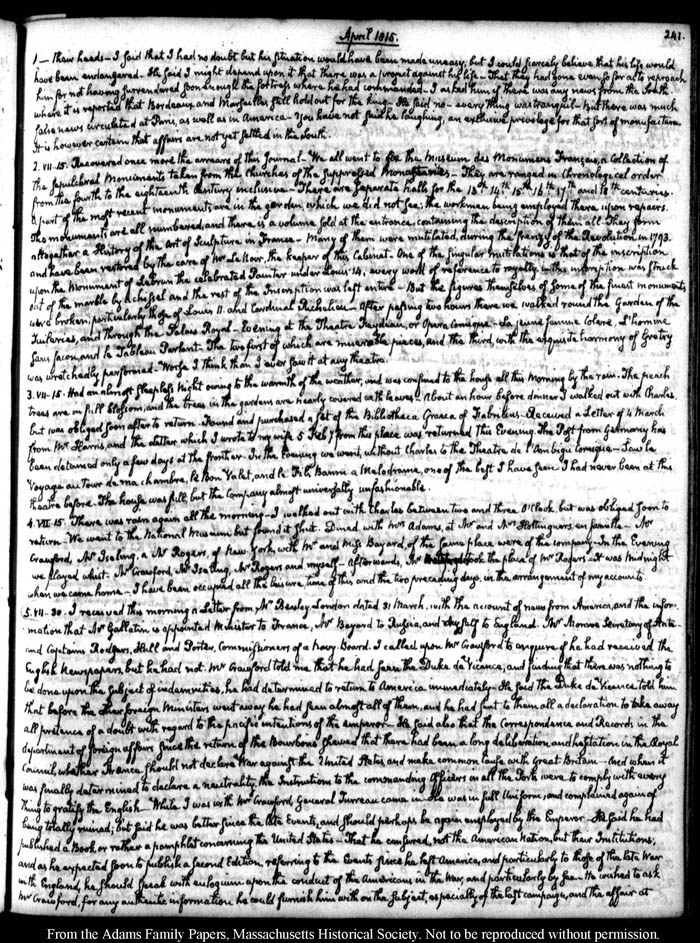 April 1815.
241.
1 — Thaw heads — I said that I had no doubt but his situation would have been made uneasy, but I could scarcely believe that his life would
have been endangered. He said I might depend upon it that there was a project against his life — That they had gone even so far as to reproach
him for not having surrendered soon enough the fortress where he had commanded. I asked him if there was any news from the South
where it is reported that Bordeaux and Marseilles still hold out for the King. He said no — every thing was tranquil — But there was much
false news circulated at Paris, as well as in America — You have not said he laughing, an exclusive privilege for that sort of manufacture.
It is however certain that affairs are not yet settled in the South.
2. VII. 15. Recovered once more the arrears of this Journal — We all went to see the Museum des Monumens Français, a Collection of
the sepulchral Monuments taken from the churches of the suppressed Monasteries — They are ranged in Chronological order
from the fourth to the eighteenth Century inclusive — There are separate halls for the 13th 14th 15th 16th 17th and 18th centuries.
A part of the most recent monuments are in the garden, which we did not see; the workmen being employed there upon repairs.
The monuments are all numbered, and there is a volume sold at the entrance, containing the description of them all. They form
altogether a History of the art of Sculpture in France — Many of them were mutilated, during the frenzy of the Revolution in 1793.
and have been restored by the care of Mr Le Noir the keeper of this Cabinet. One of the singular mutilations is that of the inscription
upon the Monument of Lebrun the celebrated Painter under Louis 14, every word of reference to royalty in this inscription was struck
out of the marble by a chissel and the rest of the Inscription was left entire — But the figures themselves of some of the finest monuments
were broken; particularly those of Louis 11. and Cardinal Richelieu — After passing two hours there we walked round the Garden of the
Tuileries, and through the Palais Royal. Evening at the Theatre Feydeau, or Opera Comique — La jeune femme Colere, L'homme
sans facon, and le Tableau Parlant. The two first of which are miserable pieces, and the third, with the exquisite harmony of Gretry
was wretchedly performed — Worse I think than I ever saw it at any theatre.
3. VII. 15. Had an almost sleepless Night owing to the warmth of the weather, and was confined to the house all this Morning by the rain. The peach
trees are in full blossom, and the trees in the gardens are nearly covered with leaves. About an hour before dinner I walked out with Charles,
but was obliged soon after to return. Found and purchased a set of the Bibliotheca Graeca of Fabricius — Received a Letter of 4 March
from Mr Harris, and the letter which I wrote to my wife 5 Feby from this place was returned this Evening. The Post from Germany has
been detained only a few days at the frontier. In the Evening we went, without Charles to the Theatre de l'Ambigu Comique — Saw le
Voyage autour de ma chambre, le Bon Valet, and le Fils Banni a Melodrame, one of the best I have seen. I had never been at this
theatre before. The house was full, but the Company almost universally unfashionable.
4. VII. 15. There was rain again all the morning. I walked out with Charles between two and three O'Clock, but was obliged soon to
return. We went to the National Museum but found it shut. Dined with Mrs Adams, at Mr and Mrs Hottinguer's, en famille — Mr
Crawford, Mr Iselin, a Mr Rogers, of New York, with Mr and Miss Bayard, of the same place were of the company — In the Evening
we played whist. Mr Crawford, Mr Iselin, Mr Rogers and myself — afterwards, Mr took the place of Mr Rogers. It was Midnight
when we came home — I have been occupied all the leisure time of this and the two preceding days, in the arrangement of my accounts.
5. VII. 30. I received this morning a Letter from Mr Beasley London dated 31 March, with the account of news from America, and the infor-
mation that Mr Gallatin is appointed Minister to France, Mr Bayard to Russia, and myself to England. Mr Monroe Secretary of State
and Captains Rodgers, Hull and Porter, Commissioners of a Navy Board. I called upon Mr Crawford to enquire if he had received the
English Newspapers, but he had not. Mr Crawford told me that he had seen the Duke de Vicence, and finding that there was nothing to
be done upon the subject of indemnities, he had determined to return to America immediately. He said the Duke de Vicence told him
that before the other foreign Ministers went away he had seen almost all of them, and he had sent to them all a declaration to take away
all pretence of a doubt with regard to the pacific intentions of the emperor. He said also that the Correspondence and Records in the
department of foreign affairs since the return of the Bourbons shewed that there had been a long deliberation and hesitation in the Royal
Council, whether France should not declare War against the United States and make common cause with Great Britain — And when it
was finally determined to declare a neutrality, the Instructions to the commanding Officers in all the Ports were to comply with every
thing to gratify the English. While I was with Mr Crawford, General Turreau came in. He was in full Uniform, and complained again of
being totally ruined; but said he was better since the late Events, and should perhaps be again employed by the Emperor. He said he had
published a Book, or rather a pamphlet concerning the United States — That he censured, not the American Nation, but their Institutions;
and as he expected soon to publish a second Edition, referring to the Events since he left America, and particularly to those of the late War
with England, he should speak with eulogium upon the conduct of the Americans in the War, and particularly by sea. He wished to ask
Mr Crawford, for any authentic information he could furnish him with on the subject, especially of the last campaign, and the affair at
From the Adams Family Papers, Massachusetts Historical Society. Not to be reproduced without permission.